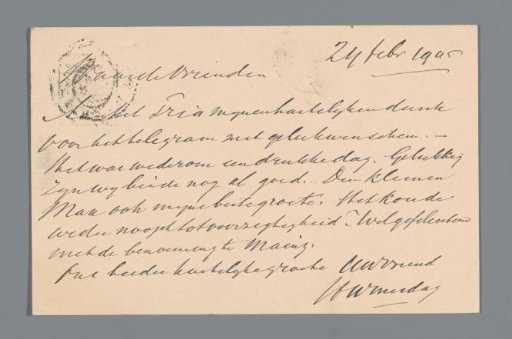 24 febr 190
Waarde Vrienden
Aan het Trio mijnen hartelijken dank
voor het telegram met gelukwenschen. —
Het was wederom een drukke dag. Gelukkig
zijn wij beide nog al goed. Den kleinen
Max ook mijne beste groete. Het koude
weder noopt tot voorzigtigheid.
met de benoeming te Mainz.
Ons beider hartelijke groete Uw Vriend
HWMesdag